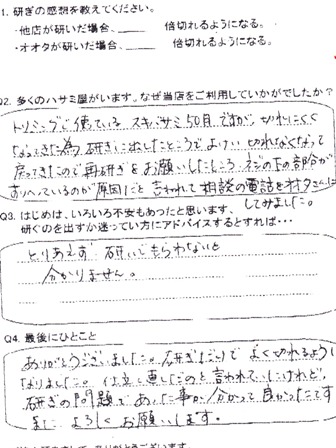 1. 研ぎの感想を教えてください。
・他店が研いだ場合、____ 倍切れるようになる。
・オオタが研いだ場合、____ 倍切れるようになる。
Q2. 多くのハサミ屋がいます。なぜ当店をご利用していかがでしたか?
トリミングで使っている スキバサミ50目 ですが、切れにくく
なってきた為 研ぎに出したところで よけい 切れなくなって
戻ってきたので再研ぎをお願いしたところ ネジの下の部分が
すりへっているのが原因だと 言われて 相談の電話をオオタさんに
してみました。
Q3. はじめは、いろいろ不安もあったと思います、
研ぐのを出すか迷ってい方にアドバイスするとすれば・・・
とりあえず 研いでもらわないと
分かりません。
Q4. 最後にひとこと
ありがとうございました。研ぎだけで よく切れるように
なりました。 直したのと言われていたけれど、
研ぎの問題であった事が 分かって 良かったです
また よろしく お願いします。